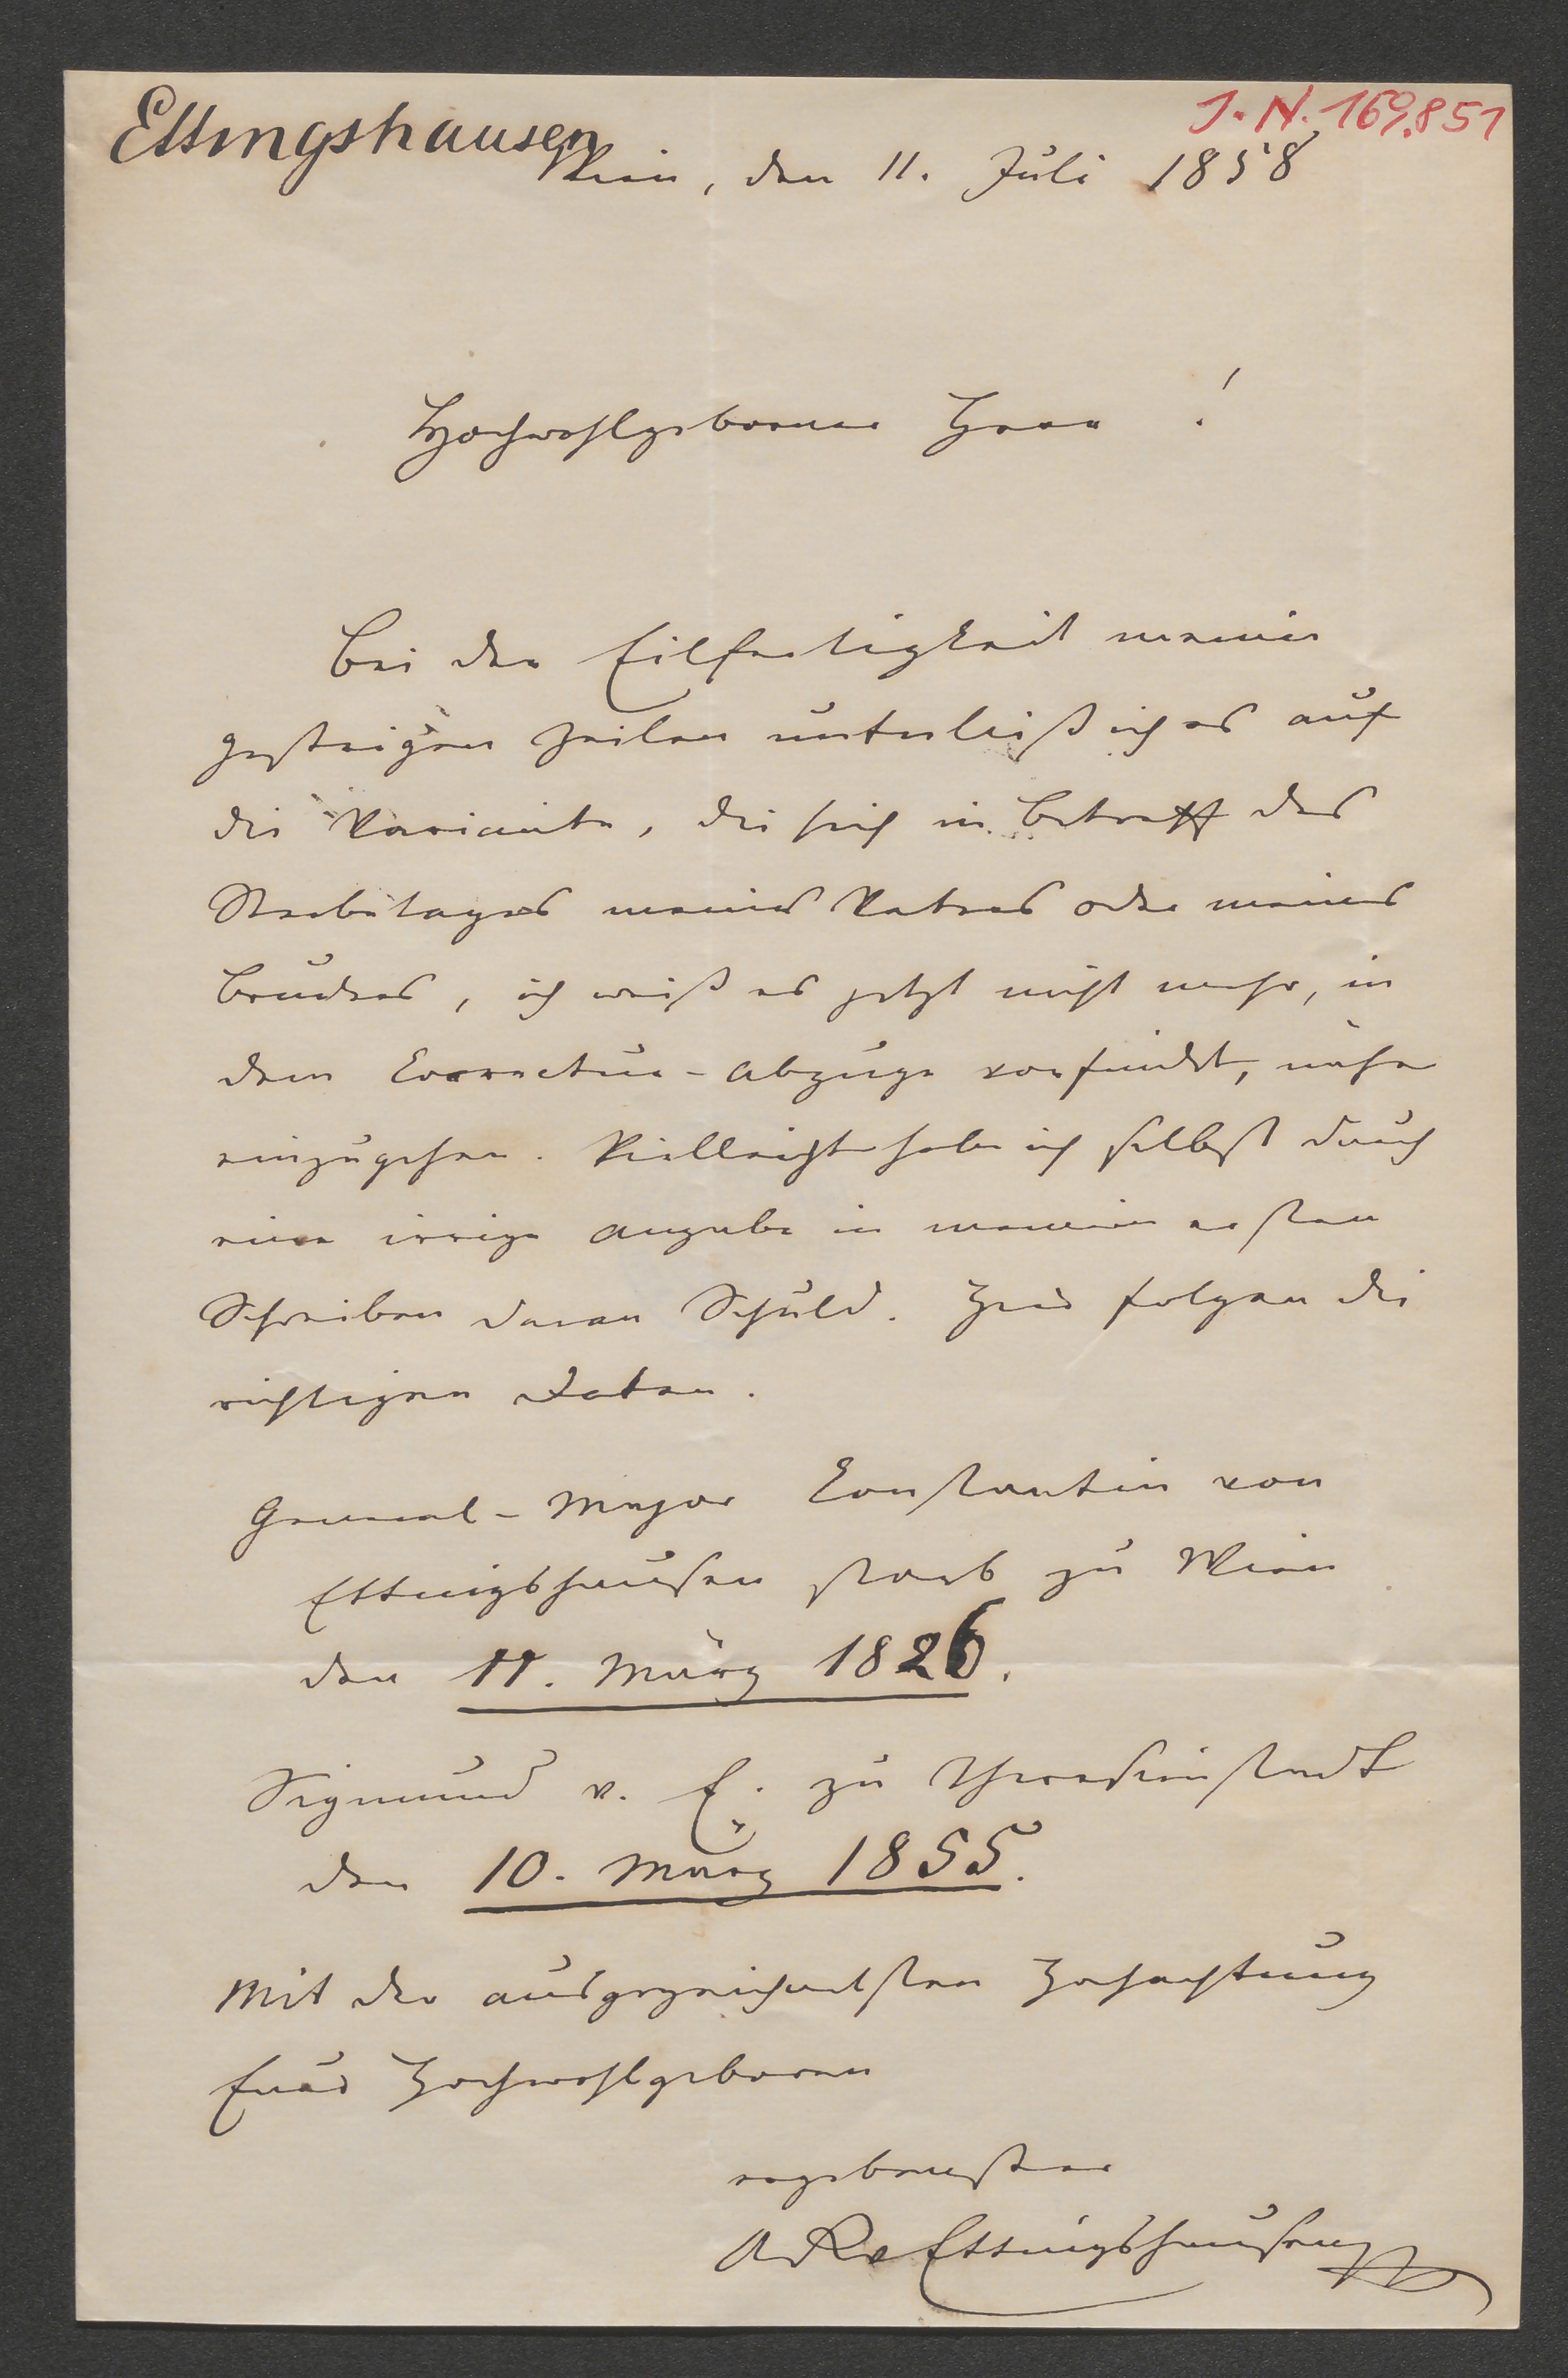 Ettingshausen
J. N. 169.851
Wien, den 11. Juli 1858
Hochwohlgeborner Herr !
Bei der Eilfertigkeit meiner
gestrigen Zeilen unterließ ich es auf
die Variante, die sich in Betreff des
Sterbetages meines Vaters oder meines
Bruders, ich weiß es jetzt nicht mehr, in
dem Correctur-Abzuge vorfindet, näher
einzugehen. Vielleicht habe ich selbst durch
eine irrige Angabe in meinem ersten
Schreiben daran Schuld. Hier folgen die
richtigen Daten.
General-Major Constantin von
Ettingshausen starb zu Wien
den 11. März 1826.
Sigmund v. E. zu Theresienstadt
den 10. März 1855.
Mit der ausgezeichnetsten Hochachtung
Euer Hochwohlgeboren
ergebenster
A R v Ettingshausen